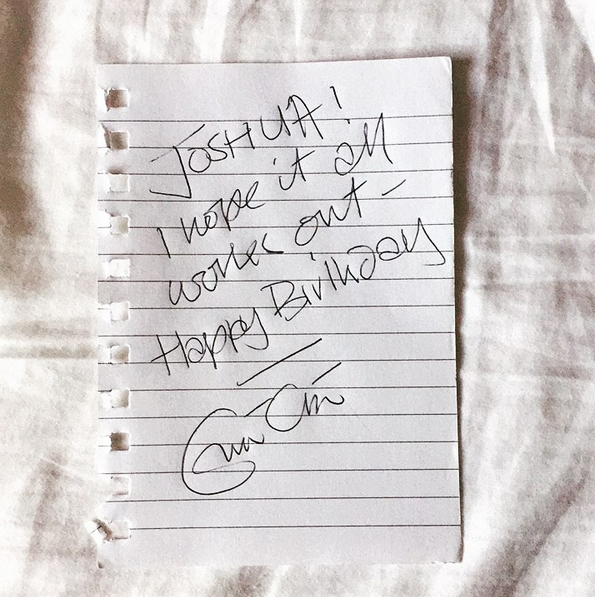 JOSHUA!
I hope it all
works out -
Happy Birthday